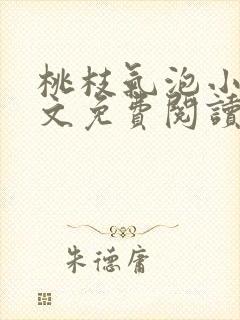 桃枝氣泡小
文免費閱讀
朱德庸